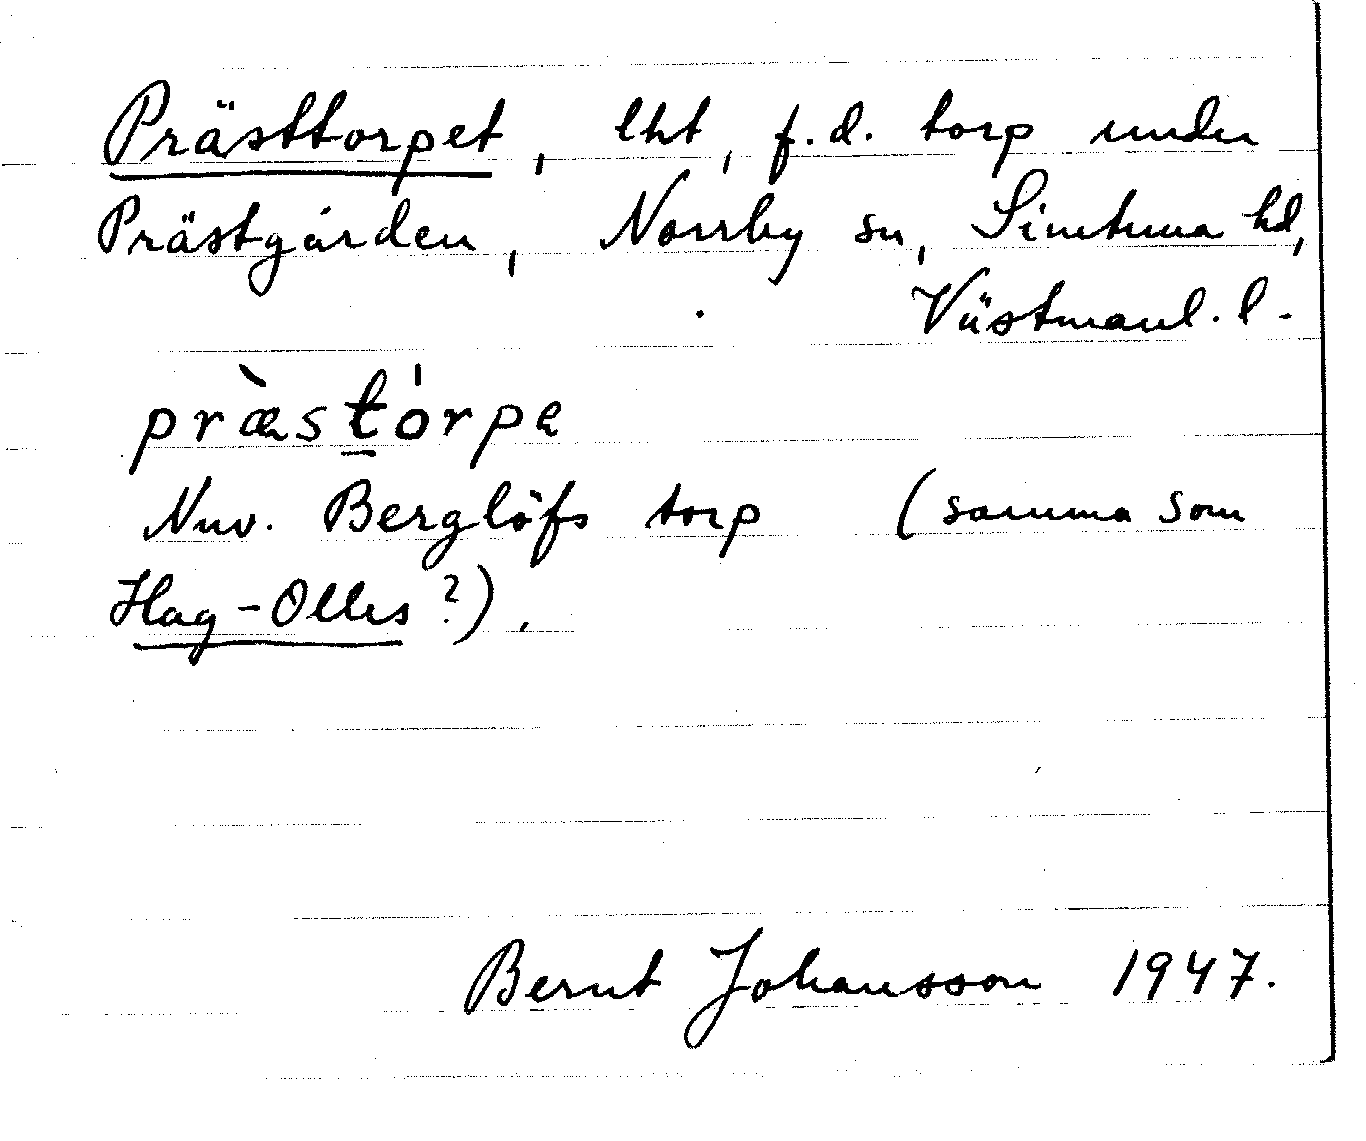 Prästtorpet, lht, f.d. torp under
Prästgården, Norrby sn, Simtuna hd,
Västmanl. l.
præ̀sto̍rpe
Nuv. Berglöfs torp (samma som
Hag-Olles?).
Bernt Johansson 1947.